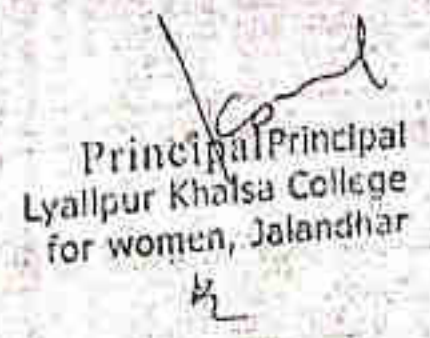 Principal Principal
Lyallpur Khalsa College
for women, Jalandhar